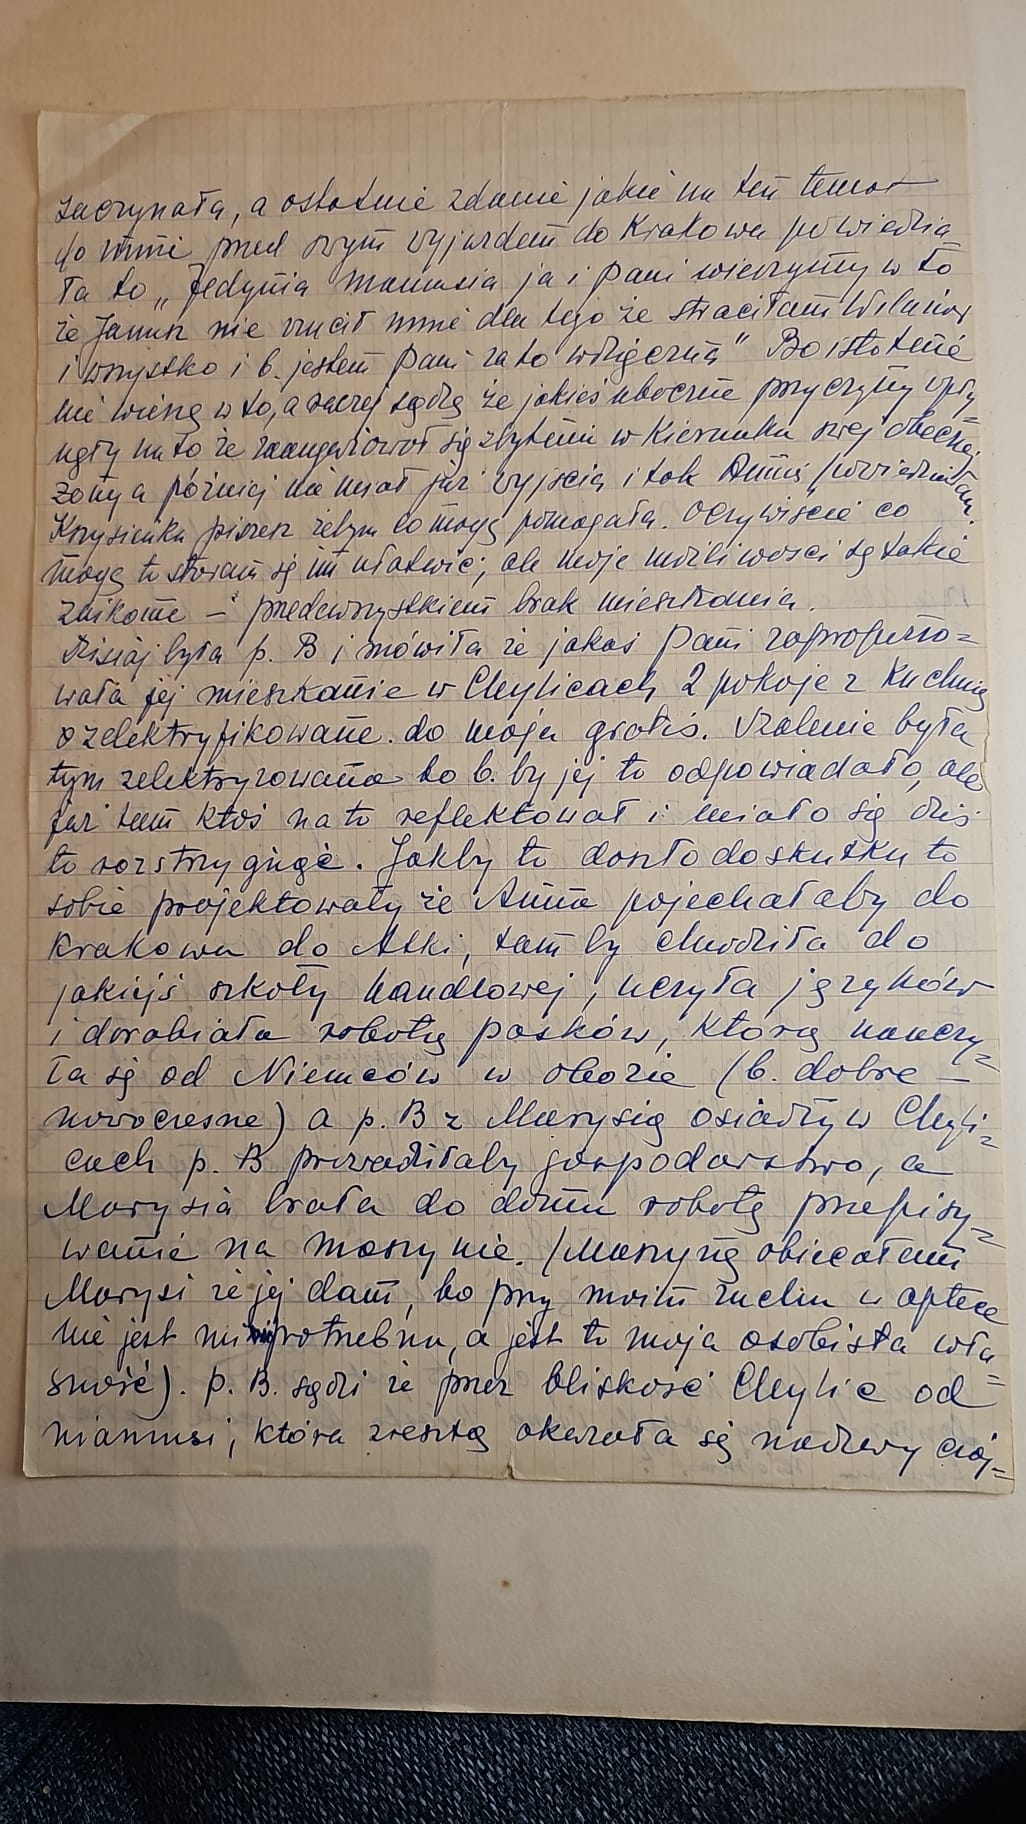 zaczynała, a ostatnie zdanie jakie na ten temat
do mnie przed swym wyjazdem do Krakowa powiedzia
ła to „Jedynie mamusia ja i Pani wierzymy w to
że Janusz nie rzucił mnie dla tego że straciłam Wilanów
i wszystko i b. jestem Pani za to wdzięczna" Bo istotnie
nie wierzę w to, a raczej sądzę że jakieś uboczne przyczyny wpły
nęły na to że zaangażował się zbytnio w kierunku swej obecnej
żony a później nie miał już wyjścia i tak Annie powiedziałam.
Krysieńka piszesz żebym co mogę pomagała. Oczywiście co
mogę to staram się im ułatwić, ale moje możliwości są takie
znikome – przedewszystkiem brak mieszkania.
Dzisiaj była p. B i mówiła że jakaś Pani zapropono=
wała jej mieszkanie w Chylicach 2 pokoje z kuchnią
zelektryfikowane do maja gratis. Szalenie była
tym zelektryzowana bo b. by jej to odpowiadało, ale
już tam ktoś na to reflektował i miało się dziś
to rozstrzygnąć. Jakby to doszło do skutku to
sobie projektowały że Anna pojechałaby do
Krakowa do Atki, tam by chodziła do
jakiejś szkoły handlowej, uczyła języków
i dorabiała robotą pasków, którą nauczy=
ła się od Niemców w obozie (b. dobre –
nowoczesne) a p. B z Marysią osiadły w Chyli=
cach p. B prowadziłaby gospodarstwo, a
Marysia brała do domu robotę przepisy=
wanie na maszynie. (Maszynę obiecałam
Marysi że jej dam, bo przy moim ruchu w aptece
nie jest mi potrzebna, a jest to moja osobista wła=
sność). p. B. sądzi że przez bliskość Chylic od
niamusi, która zresztą okazała się nadzwyczaj=